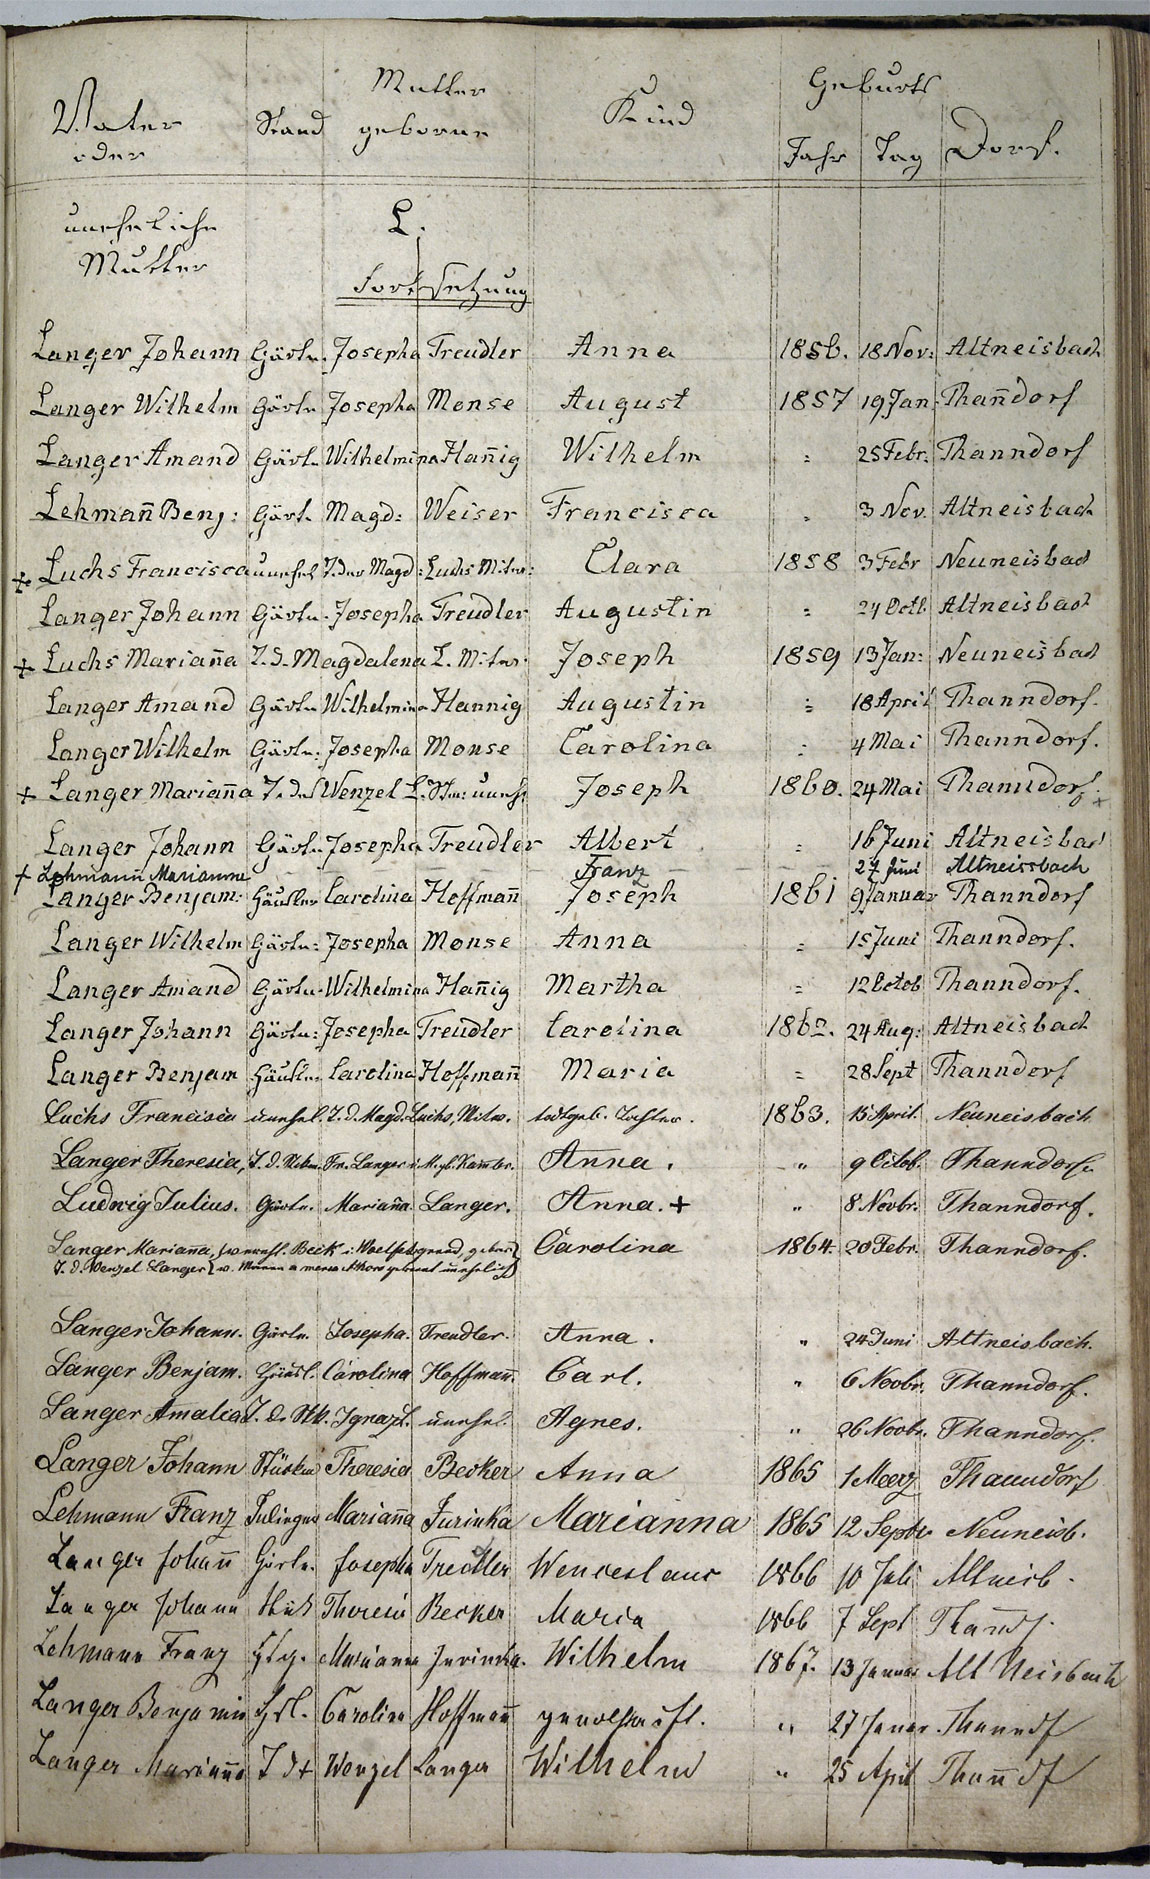 Mutter Geburts
Vater Stand geborne Kind Jahr Tag Dorf.
oder
uneheliche L.
Mutter
Fortsetzung
Langer Johann Gärtn. Josepha Treudler Anna 1856. 18 Nov: Altneisbach
Langer Wilhelm Gärtn Josepha Monse August 1857 19 Jan: Than̄dorf
Langer Amand Gärtn Wilhelmina Han̄ig Wilhelm = 25 Febr. Thanndorf
Lehman̄ Benj: Gärt. Magd: Weiser Francisca = 3 Nov. Altneisbach
+ Luchs Francisca unehel T. der Magd: Luchs Mitw: Clara 1858 3 Febr Neuneisbach
Langer Johann Gärtn. Josepha Treudler Augustin = 24 Octb. Altneisbach
+ Luchs Marian̄a T. d. Magdalena L. Mitw. Joseph 1859 13 Jan: Neuneisbach
Langer Amand Gärtn Wilhelmina Hannig Augustin = 18 April Thanndorf.
Langer Wilhelm Gärtn: Josepha Monse Carolina = 4 Mai Thanndorf.
+ Langer Marian̄a T. d. Wenzel L. uneh Joseph 1860. 24 Mai Thanndorf. +
Langer Johann Gärtn Josepha Treudler Albert = 16 Juni Altneisbach
+ Lehmann̄ Marianne Franz 27 Juni Altneissbach
Langer Benjam: Häusler Carolina Hoffman̄ Joseph 1861 9 Januar Thanndorf
Langer Wilhelm Gärtn: Josepha Monse Anna = 15 Juni Thanndorf.
Langer Amand Gärtn. Wilhelmina Han̄ig Martha = 12 Octob Thanndorf.
Langer Johann Gärtn: Josepha Treudler Carolina 1862. 24 Aug: Altneisbach
Langer Benjam Häusler Carolina Hoffman̄ Maria = 28 Sept Thanndorf
Luchs Francisca unehel. T. d. Magd. Luchs, Mitw. todtgeb. Tochter. 1863. 15 April. Neuneisbach
Langer Theresia, T. d. Fr. Langer Anna. " 9 Octob. Thanndorf.
Ludwig Julius. Gärtn. Marian̄a Langer. Anna. + " 8 Novbr. Thanndorf.
Langer Marian̄a, Beck i. Woelfelsgrund, Carolina 1864. 20 Febr. Thanndorf.
T. d. Wenzel Langer unehelich
Langer Johann. Gärtn. Josepha. Treudler. Anna. " 24 Juni Altneisbach.
Langer Benjam. Häusl. Carolina Hoffman̄. Carl. " 6 Novbr. Thanndorf.
Langer Amalia T. d. Ignaz L. unehel. Agnes. " 26 Novbr. Thanndorf.
Langer Johann Theresia Becker Anna 1865 1 Maerz Thanndorf
Lehmann Franz Marian̄a Jurinka Marianna 1865 12 Septbr Neuneisb.
Langer Johan̄ Gärtn. Josepha Treudler Wenceslaus 1866 10 Juli Altneisb.
Langer Johann Theresia Becker Maria 1866 7 Sept Than̄df.
Lehmann Franz Marianna Jurinka. Wilhelm 1867. 13 Januar Alt Neisbach
Langer Benjamin Hsl. Carolina Hoffman̄ " 27 Januar. Thanndf
Langer Marian̄a T d + Wenzel Langer Wilhelm " 25 April Than̄df